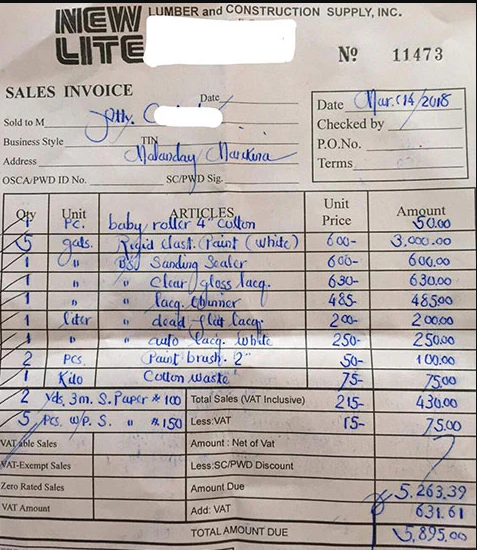 NEW LITE LUMBER and CONSTRUCTION SUPPLY, INC.
Nº 11473
SALES INVOICE
Date
Date Mar. 14/2018
Sold to M
Checked by
Business Style TIN
P.O.No.
Address Malanday Marikina
Terms
OSCA/PWD ID No. SC/PWD Sig.
Qty Unit ARTICLES Unit Price Amount
1 Pc. baby roller 4" cotton 50.00
5 gals. Rigid elast. Paint (white) 600- 3,000.00
1 " Sanding Sealer 600- 600.00
1 " clear gloss lacq. 630- 630.00
1 " lacq. thinner 485- 485.00
1 liter " dead flat lacq. 200- 200.00
1 " " auto lacq. white 250- 250.00
2 pcs. Paint brush 2" 50- 100.00
1 Kilo Cotton waste 75- 75.00
2 yds. 3m. S. Paper # 100 Total Sales (VAT Inclusive) 215- 430.00
5 Pcs. w/p. S. " # 150 Less:VAT 15- 75.00
VATable Sales Amount : Net of Vat
VAT-Exempt Sales Less:SC/PWD Discount
Zero Rated Sales Amount Due 5,263.39
VAT Amount Add: VAT 631.61
TOTAL AMOUNT DUE 5,895.00